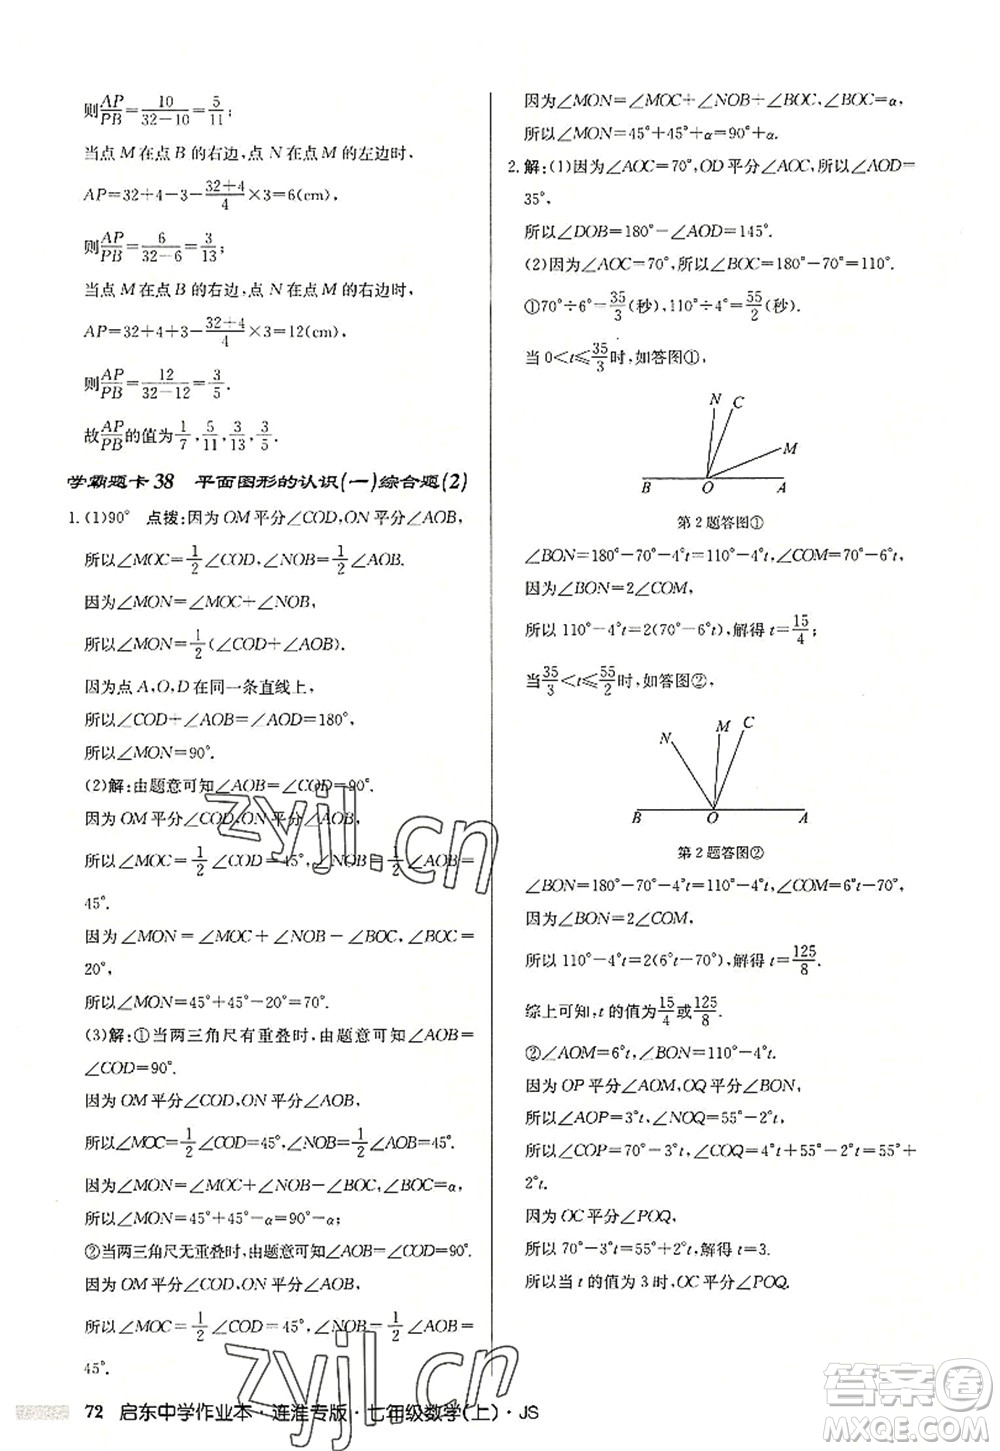 则AP/PB=10/(32-10)=5/11;
当点 M 在点 B 的右边,点 N 在点 M 的左边时,
AP=32+4-3-(32+4)/4×3=6(cm),
则AP/PB=6/(32-6)=3/13;
当点 M 在点 B 的右边,点 N 在点 M 的右边时,
AP=32+4+3-(32+4)/4×3=12(cm),
则AP/PB=12/(32-12)=3/5.
故AP/PB的值为1/7,5/11,3/13,3/5.
学霸题卡 38 平面图形的认识(一)综合题(2)
1.(1)90° 点拨:因为 OM 平分∠COD,ON 平分∠AOB,
所以∠MOC=1/2∠COD,∠NOB=1/2∠AOB.
因为∠MON=∠MOC+∠NOB,
所以∠MON=1/2(∠COD+∠AOB).
因为点 A,O,D 在同一条直线上,
所以∠COD+∠AOB=∠AOD=180°,
所以∠MON=90°.
(2)解:由题意可知∠AOB=∠COD=90°.
因为 OM 平分∠COD,ON 平分∠AOB,
所以∠MOC=1/2∠COD=45°,∠NOB=1/2∠AOB=
45°.
因为∠MON=∠MOC+∠NOB-∠BOC,∠BOC=
20°,
所以∠MON=45°+45°-20°=70°.
(3)解:①当两三角尺有重叠时,由题意可知∠AOB=
∠COD=90°.
因为 OM 平分∠COD,ON 平分∠AOB,
所以∠MOC=1/2∠COD=45°,∠NOB=1/2∠AOB=45°.
因为∠MON=∠MOC+∠NOB-∠BOC,∠BOC=α,
所以∠MON=45°+45°-α=90°-α;
②当两三角尺无重叠时,由题意可知∠AOB=∠COD=90°.
因为 OM 平分∠COD,ON 平分∠AOB,
所以∠MOC=1/2∠COD=45°,∠NOB=1/2∠AOB=
45°.
因为∠MON=∠MOC+∠NOB+∠BOC,∠BOC=α,
所以∠MON=45°+45°+α=90°+α.
2.解:(1)因为∠AOC=70°,OD 平分∠AOC,所以∠AOD=
35°,
所以∠DOB=180°-∠AOD=145°.
(2)因为∠AOC=70°,所以∠BOC=180°-70°=110°.
①70°÷6°=35/3(秒),110°÷4°=55/2(秒).
当 0<t≤35/3时,如答图①,
N C
M
B O A
第 2 题答图①
∠BON=180°-70°-4°t=110°-4°t,∠COM=70°-6°t,
因为∠BON=2∠COM,
所以 110°-4°t=2(70°-6°t),解得 t=15/4;
当35/3<t≤55/2时,如答图②,
N M C
B O A
第 2 题答图②
∠BON=180°-70°-4°t=110°-4°t,∠COM=6°t-70°,
因为∠BON=2∠COM,
所以 110°-4°t=2(6°t-70°),解得 t=125/8.
综上可知,t 的值为15/4或125/8.
②∠AOM=6°t,∠BON=110°-4°t,
因为 OP 平分∠AOM,OQ平分∠BON,
所以∠AOP=3°t,∠NOQ=55°-2°t,
所以∠COP=70°-3°t,∠COQ=4°t+55°-2°t=55°+
2°t.
因为 OC 平分∠POQ,
所以 70°-3°t=55°+2°t,解得 t=3.
所以当 t 的值为 3 时,OC 平分∠POQ.
72 启东中学作业本·连淮专版·七年级数学(上)·JS
zyjl.cn
zyjl.cn
答案圈
MXQE.COM